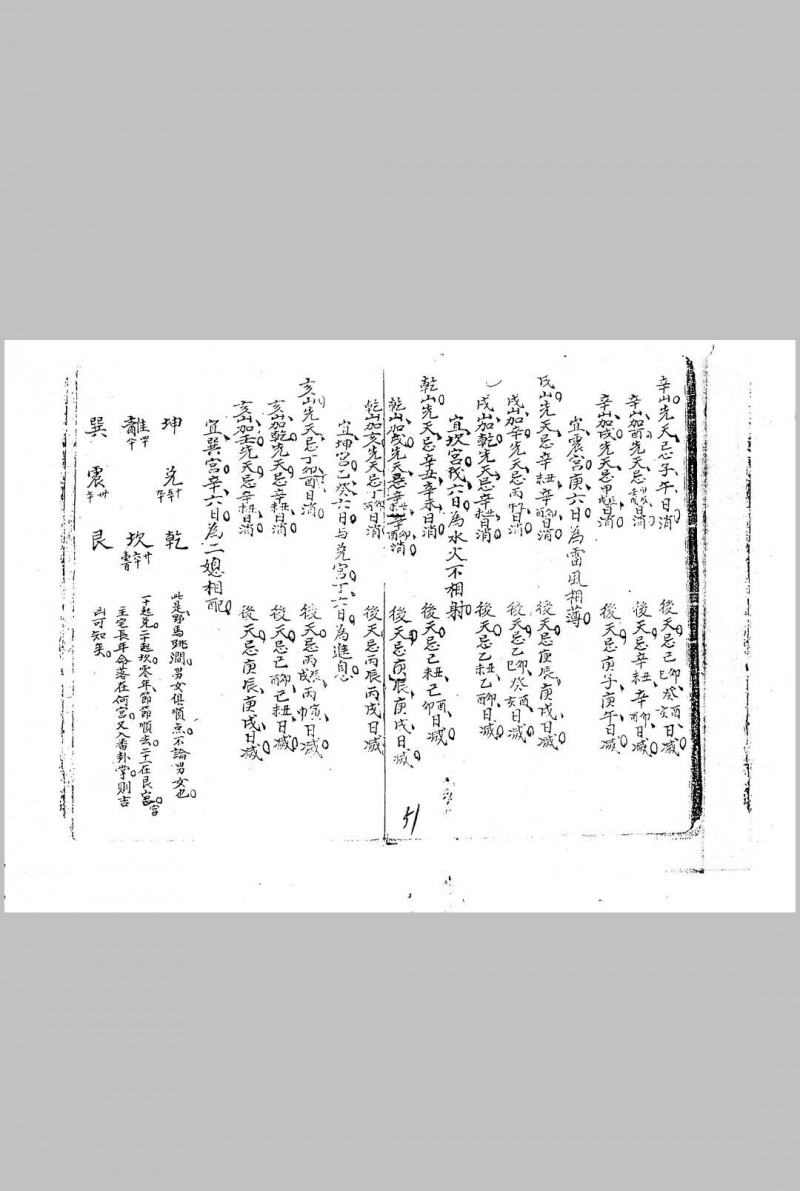 辛山先天忌子午日消。後天忌己卯巳癸酉亥日减
辛山加酉先天忌日消後天忌辛未丑辛卯日减
辛山加戌先天忌甲日消後天忌庚子庚午日减
宜震宮庚六日為雷風相薄
戌山先天忌辛未丑辛卯日消後天忌庚辰庚戌日减
戌山加辛先天忌丙日消後天忌乙卯巳癸亥日减
戌山加乾先天忌辛未丑日消後天忌乙未丑乙卯日减
宜坎宮戊六日為水火不相射
乾山先天忌辛丑辛未日消後天忌己未丑己酉卯日减
乾山加戌先天忌辛未丑辛酉卯消後天忌庚辰庚戌日减
乾山加亥先天忌丁卯酉日消後天忌丙辰丙戌日减
宜坤宮乙癸六日与兌宮丁六日為進息
亥山先天忌丁卯酉日消後天忌丙戌辰丙寅日减
亥山加乾先天忌辛未丑日消後天忌己酉卯己未丑日减
亥山加壬先天忌辛未丑日消後天忌庚辰庚戌日减
宜巽宮辛六日為二媳相配
坤 兌 乾
離 坎
巽 震 艮
此是野馬跳澗。男女俱順点。不論男女也。
一十起兌。二十起坎零年。節節順去。二十一在艮宮。
主宅長年命。落在何宮。又入番卦掌。則吉
凶可知矣。
51